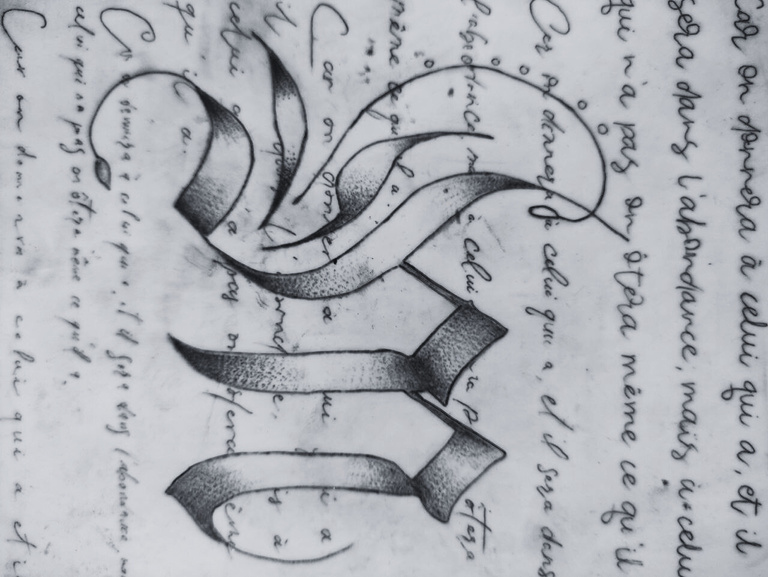 Car on donnera à celui qui a, et il
sera dans l'abondance, mais à celu
qui n'a pas on ôtera même ce qu'il
Car on donnera à celui qui a, et il sera dans
l'abondance à celui ôtera
même ce qu'il a.
Car on donnera à qui a
il
celui pas on ôtera même
qu'il a.
Car on donnera à celui qui a, et il sera dans l'abondance, mai
celui qui n'a pas on ôtera même ce qu'il a.
Car on donnera à celui qui a et i